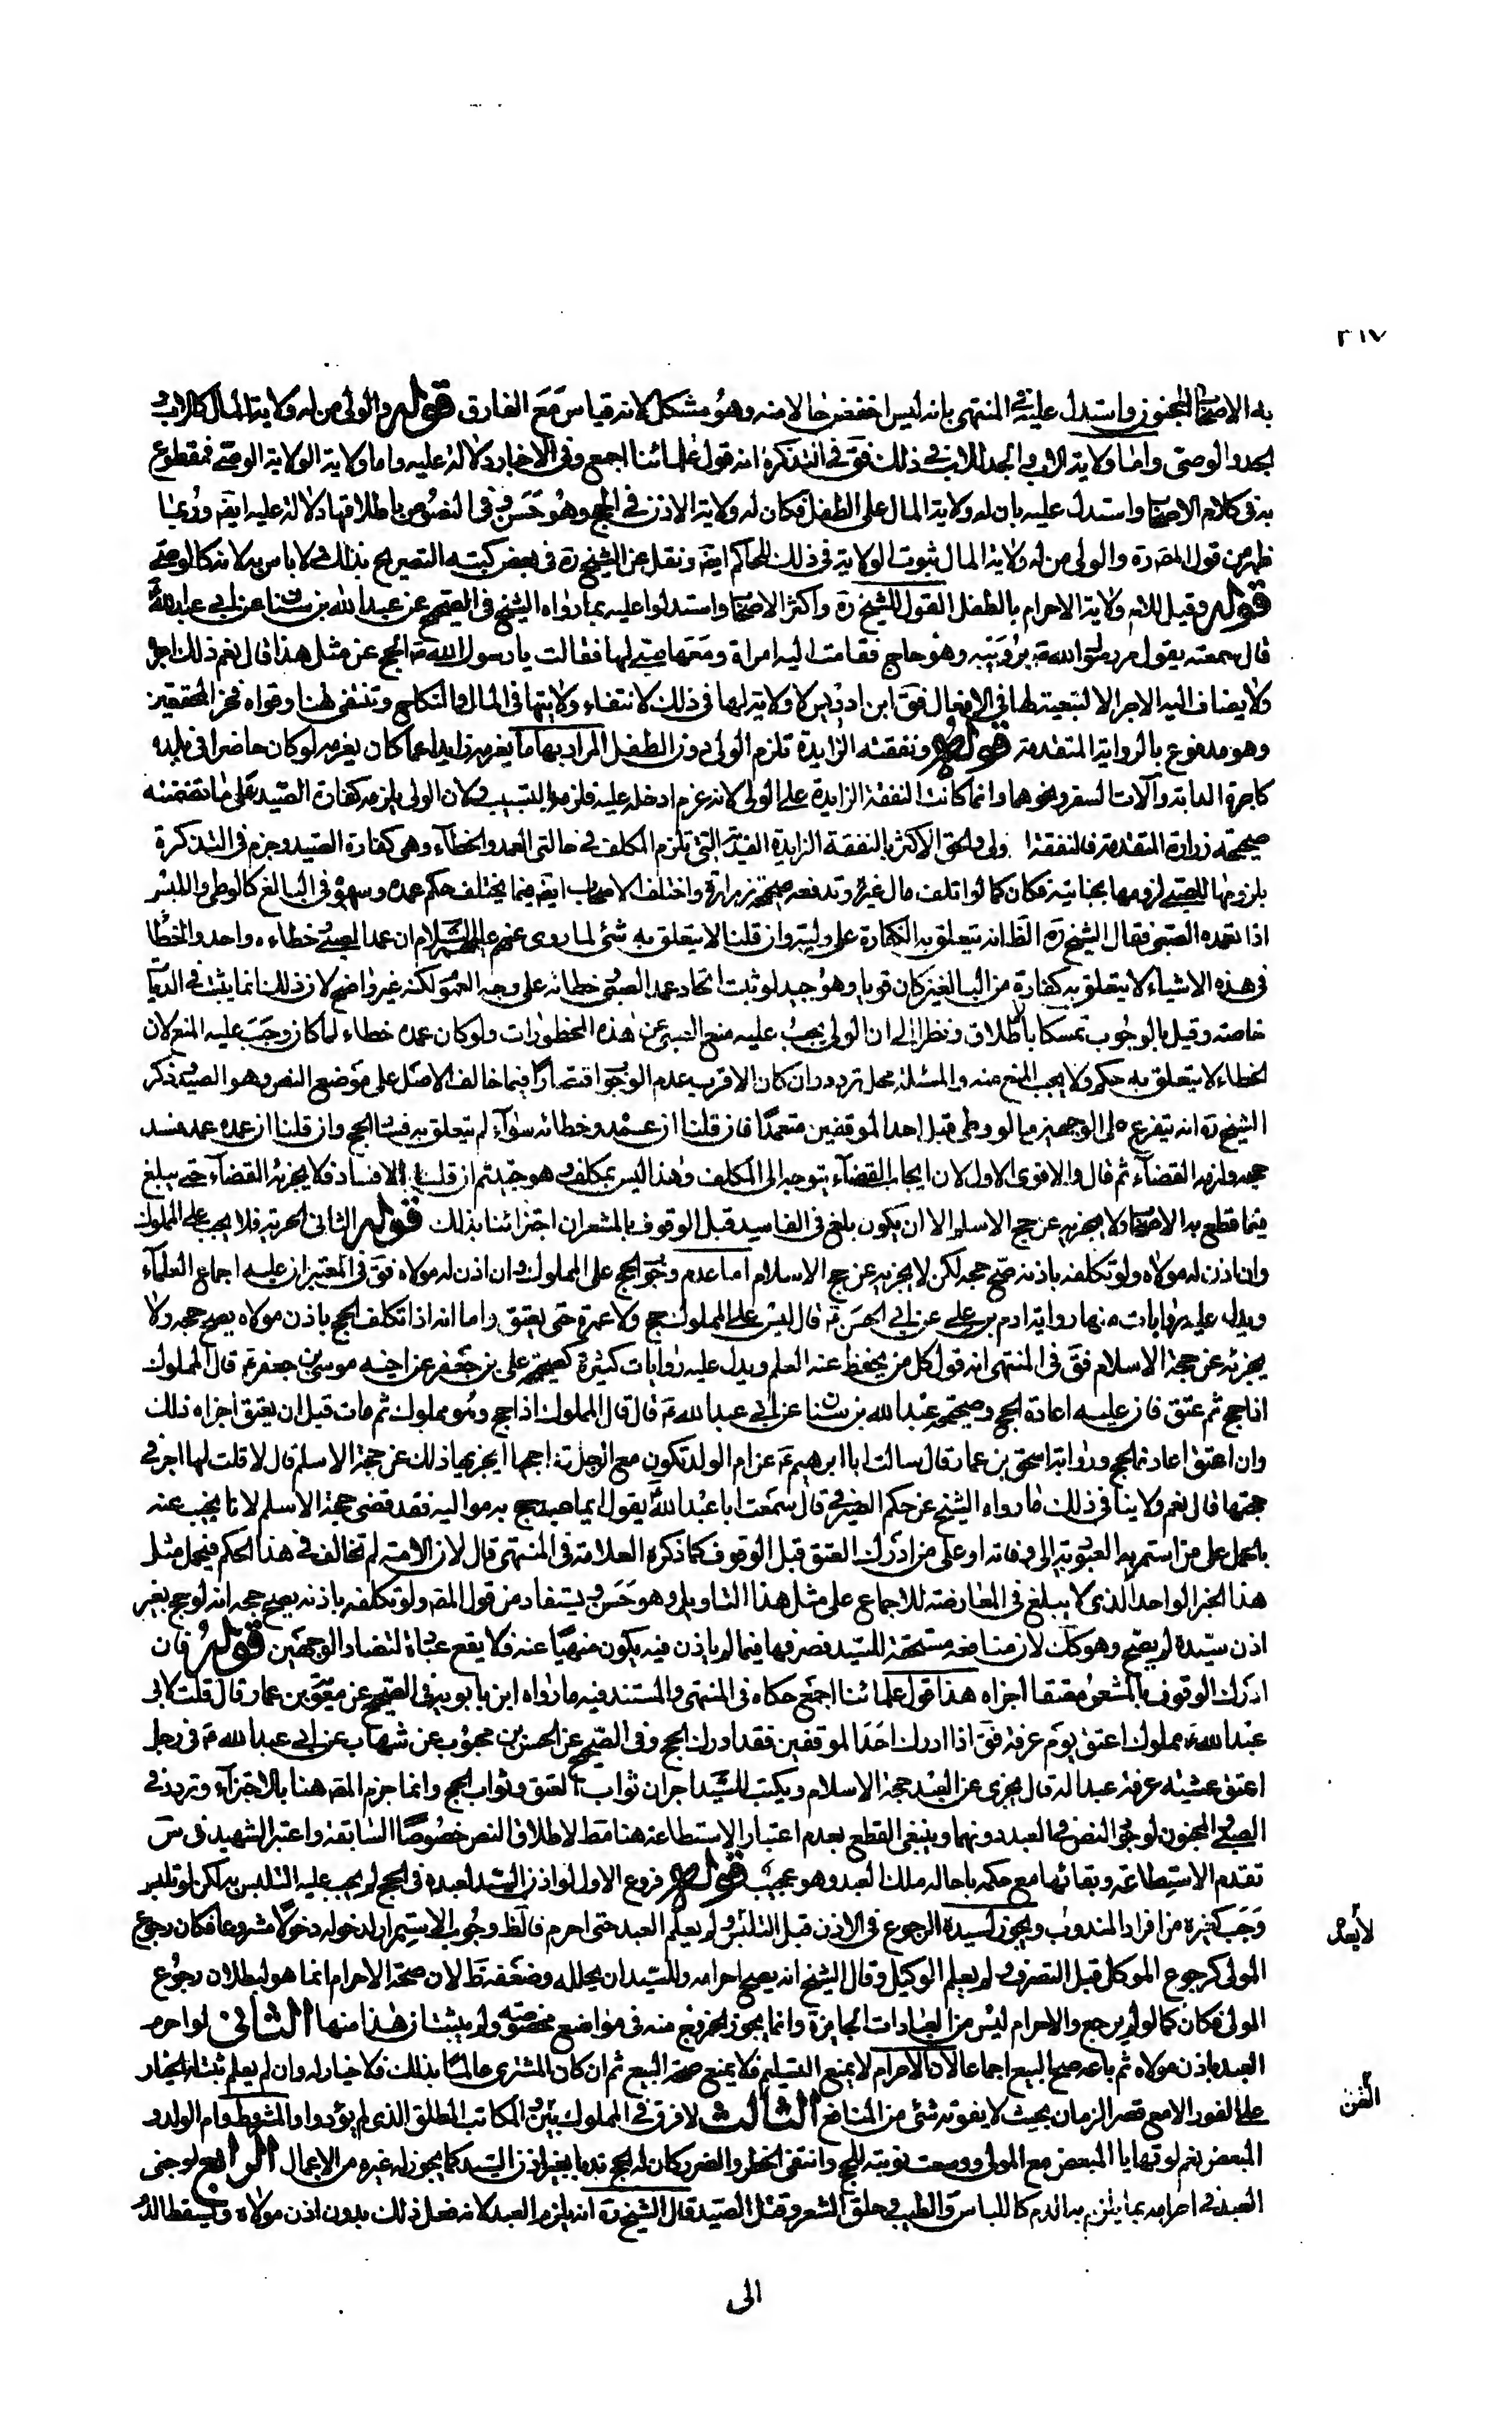 ٣١٧
به الاصحاب المجنون واستدل عليه في المنتهى بانه ليس اخفض حالا منه وهو مشكل لانه قياس مع الفارق قوله والولى من له ولاية المال كالاب و
الجد والوصى واما ولاية الاب والجد للاب في ذلك فقَ في التذكرة انه قول علمائنا اجمع وفي الاخبار دلالة عليه واما ولاية الولاية الوصي فمقطوع
به في كلام الاصحاب واستدل عليه بان له ولاية المال على الطفل فكان له ولاية الاذن في الحج وهو حسن وفي النصوص باطلاقها دلالة عليه ايضَ وربما
ظهر من قول المصَ رة والولى من له ولاية المال ثبوت الولاية في ذلك للحاكم ايضَ ونقل عن الشيخ رة في بعض كتبه التصريح بذلك ولا باس به لانه كالوصي
قوله وقيل للام ولاية الاحرام بالطفل القول للشيخ رة واكثر الاصحاب واستدلوا عليه بما رواه الشيخ في الصحيح عن عبد الله بن سنان عن ابي عبد الله
قال سمعته يقول مر رسول الله صَ برويثه وهو حاج فقامت اليه امراة ومعها صبي لها فقالت يا رسول الله صَ ايحج عن مثل هذا قال نعم ولك اجره
ولا يضاف اليه الاجر الا لتبعيته لها في الافعال فقَ ابن ادريس لا ولاية لها في ذلك لانتفاء ولايتها في المال والنكاح وتنتفى هنا وقواه فخر المحققين
وهو مدفوع بالرواية المتقدمة قوله ونفقته الزايدة تلزم الولى دون الطفل المراد بها ما يغرمه زايدا عما كان يغرمه لو كان حاضرا في بلده
كاجرة الدابة وآلات السفر ونحوهما وانما كانت النفقة الزايدة على الولى لانه غرم ادخله عليه فلزمه بالتسبيب ولان الولى يلزمه كفارة الصيد على ما تضمنته
صحيحة زرارة المتقدمة فالنفقة اولى والحق الاكثر بالنفقة الزايدة الفدية التي تلزم المكلف في حالتي العمد والخطاء وهى كفارة الصيد وجزم في التذكرة
بلزومها للصبي لزومها بجنايته فكان كما لو اتلف مال غيره وتدفعه صحيحة زرارة واختلف الاصحاب ايضَ فيما يختلف حكم عمده وسهوه في البالغ كالوطى واللبس
اذا تعمده الصبى فقال الشيخ رة الظَ انه تتعلق به الكفارة على وليه وان قلنا لا يتعلق به شئ لما روى عنهم عليهم السلام ان عمد الصبي وخطاءه واحد والخطا
في هذه الاشياء لا يتعلق به كفارة من البالغين كان قويا وهو جيد لو ثبت اتحاد عمد الصبى وخطائه على وجه العموم لكنه غير واضح لان ذلك انما يثبت في الديات
خاصة وقيل بالوجوب تمسكا بالاطلاق ونظرا الى ان الولى يجب عليه منع الصبي عن هذه المحظورات ولو كان عمده خطاء لما كان وجب عليه المنع لان
الخطاء لا يتعلق به حكم ولا يجب المنع منه والمسئلة محل تردد وان كان الاقرب عدم الوجوب اقتصارا فيما خالف الاصل على موضع النص وهو الصيد وذكر
الشيخ رة انه يتفرع على الوجهين ما لو وطى قبل احد الموقفين متعمدا فان قلنا ان عمده وخطائه سواء لم يتعلق به فساد الحج وان قلنا ان عمده عمد فسد
حجه ولزمه القضاء ثم قال والاقوى الاول لان ايجاب القضاء يتوجه الى المكلف وهذا ليس بمكلف وهو جيد ثم ان قلنا بالافساد فلا يجزئه القضاء حتى يبلغ
فيما قطع به الاصحاب ولا يجزيه عن حج الاسلم الا ان يكون بلغ في الفاسد قبل الوقوف بالمشعر ان اجتزائنا بذلك قوله الثاني الحرية فلا يجب على المملوك
وان اذن له مولاه ولو تكلفه باذنه صح حجه لكن لا يجزيه عن حج الاسلام اما عدم وجوب الحج على المملوك وان اذن له مولاه فقَ في المعتبر ان عليه اجماع العلماء
ويدل عليه روايات منها رواية ادم بن على عن ابي الحسن عَ قال ليس على المملوك حج ولا عمرة حتى يعتق واما انه اذا تكلف الحج باذن مولاه يصح حجه ولا
يجزئه عن حجة الاسلام فقَ في المنتهى انه قول كل من يحفظ عنه العلم ويدل عليه روايات كثيرة كصحيحة على بن جعفر عن اخيه موسى بن جعفر عَ قال المملوك
اذا حج ثم عتق فان عليه اعادة الحج وصحيحة عبد الله بن سنان عن ابي عبد الله عَ قال قال المملوك اذا حج وهو مملوك ثم مات قبل ان يعتق اجزاه ذلك
وان اعتق اعاد الحج ورواية اسحق بن عمار قال سالت ابا ابرهيم عَ عن ام الولد تكون مع الرجل قد احجها ايجزيها ذلك عن حجة الاسلم قال لا قلت لها اجر في
حجتها قال نعم ولا ينافي ذلك ما رواه الشيخ عن حكم الصيرفي قال سمعت ابا عبد الله يقول ايما عبد حج به مواليه فقد قضى حجة الاسلم لانا نجيب عنه
بالحمل على من استمر به العبودية الى وفاته او على من ادرك العتق قبل الوقوف كما ذكره العلامة في المنتهى قال لان الامة لم تخالف في هذا الحكم فيحمل مثل
هذا الخبر الواحد الذى لا يبلغ في المعارضة للاجماع على مثل هذا التاويل وهو حسن ويستفاد من قول المصَ ولو تكلفه باذنه يصح حجه انه لو حج بغير
اذن سيده لم يصح وهو كك لان منافعه مستحقة للسيد فصرفها فيما لم ياذن فيه يكون منهيا عنه فلا يقع عبادة لتضاد الوجهين قوله فان
ادرك الوقوف بالمشعر معتقا اجزاه هذا قول علمائنا اجمع حكاه في المنتهى والمستند فيه ما رواه ابن بابويه في الصحيح عن معوية بن عمار قال قلت لابي
عبد الله عَ مملوك اعتق يوم عرفة فقَ اذا ادرك احد الموقفين فقد ادرك الحج وفي الصحيح عن الحسن بن محبوب عن شهاب عن ابي عبد الله عَ في رجل
اعتق عشية عرفة عبدا له قال يجزى عن العبد حجة الاسلام ويكتب للسيد اجران ثواب العتق وثواب الحج وانما جزم المصَ هنا بالاجتزاء وتردد في
الصبي والمجنون لوجود النص في العبد دونهما وينبغى القطع بعدم اعتبار الاستطاعة هنا مطَ لاطلاق النص خصوصا السابقة واعتبر الشهيد في سَ
تقدم الاستطاعة وبقائها مع حكمه باحالة ملك العبد وهو عجيب قوله فروع الاول لو اذن السيد لعبده في الحج لم يجب عليه التلبس به لكن لو تلبس
وجب كغيره من افراد المندوب ويجوز لسيده الرجوع في الاذن قبل التلبس ولو لم يعلم العبد حتى احرم فالظَ وجوب الاستمرار لدخوله دخولا مشروعا فكان رجوع
لا بعد
المولى كرجوع الموكل قبل التصرف ولم يعلم الوكيل وقال الشيخ انه يصح احرامه وللسيد ان يحلله وضعفه ظَ لان صحة الاحرام انما هو لبطلان رجوع
المولى فكان كما لو لم يرجع والاحرام ليس من العبادات الجايزة وانما يجوز الخروج منه في مواضع مخصوصة ولم يثبت ان هذا منها الثاني لو احرم
العبد باذن مولاه ثم باعه صح البيع اجماعا لان الاحرام لا يمنع التسليم فلا يمنع صحة البيع ثم ان كان المشترى عالما بذلك فلا خيار له وان لم يعلم ثبت له الخيار
على الفور الا مع قصر الزمان بحيث لا يفوته شئ من المنافع الثالث لا فرق في المملوك بين القن والمكاتب المطلق الذى لم يؤد والمشروط وام الولد و
القن
المبعض نعم لو تهايا المبعض مع المولى ووسعت نوبته للحج وانتفى الخطر والضرر كان له الحج ندبا بغير اذن السيد كما يجوز له غيره من الاعمال الرابع لو جنى
العبد في احرامه بما يلزم به الدم كاللباس والطيب وحلق الشعر وقتل الصيد قال الشيخ رة انه يلزم العبد لانه فعل ذلك بدون اذن مولاه ويسقط الدم
الى